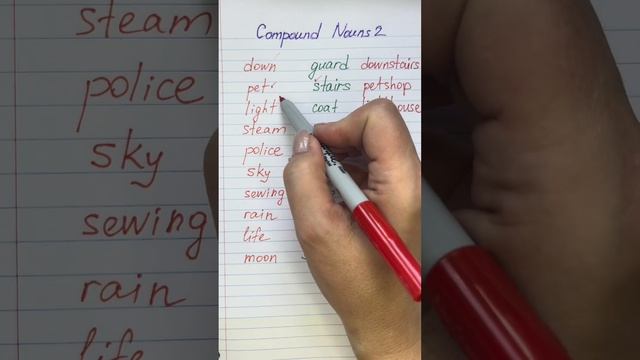 steam
police
sky
sewing
rain
life
Compound Nouns 2
down guard downstairs
pet stairs petshop
light coat lighthouse
steam
police
sky
sewing
rain
life
moon